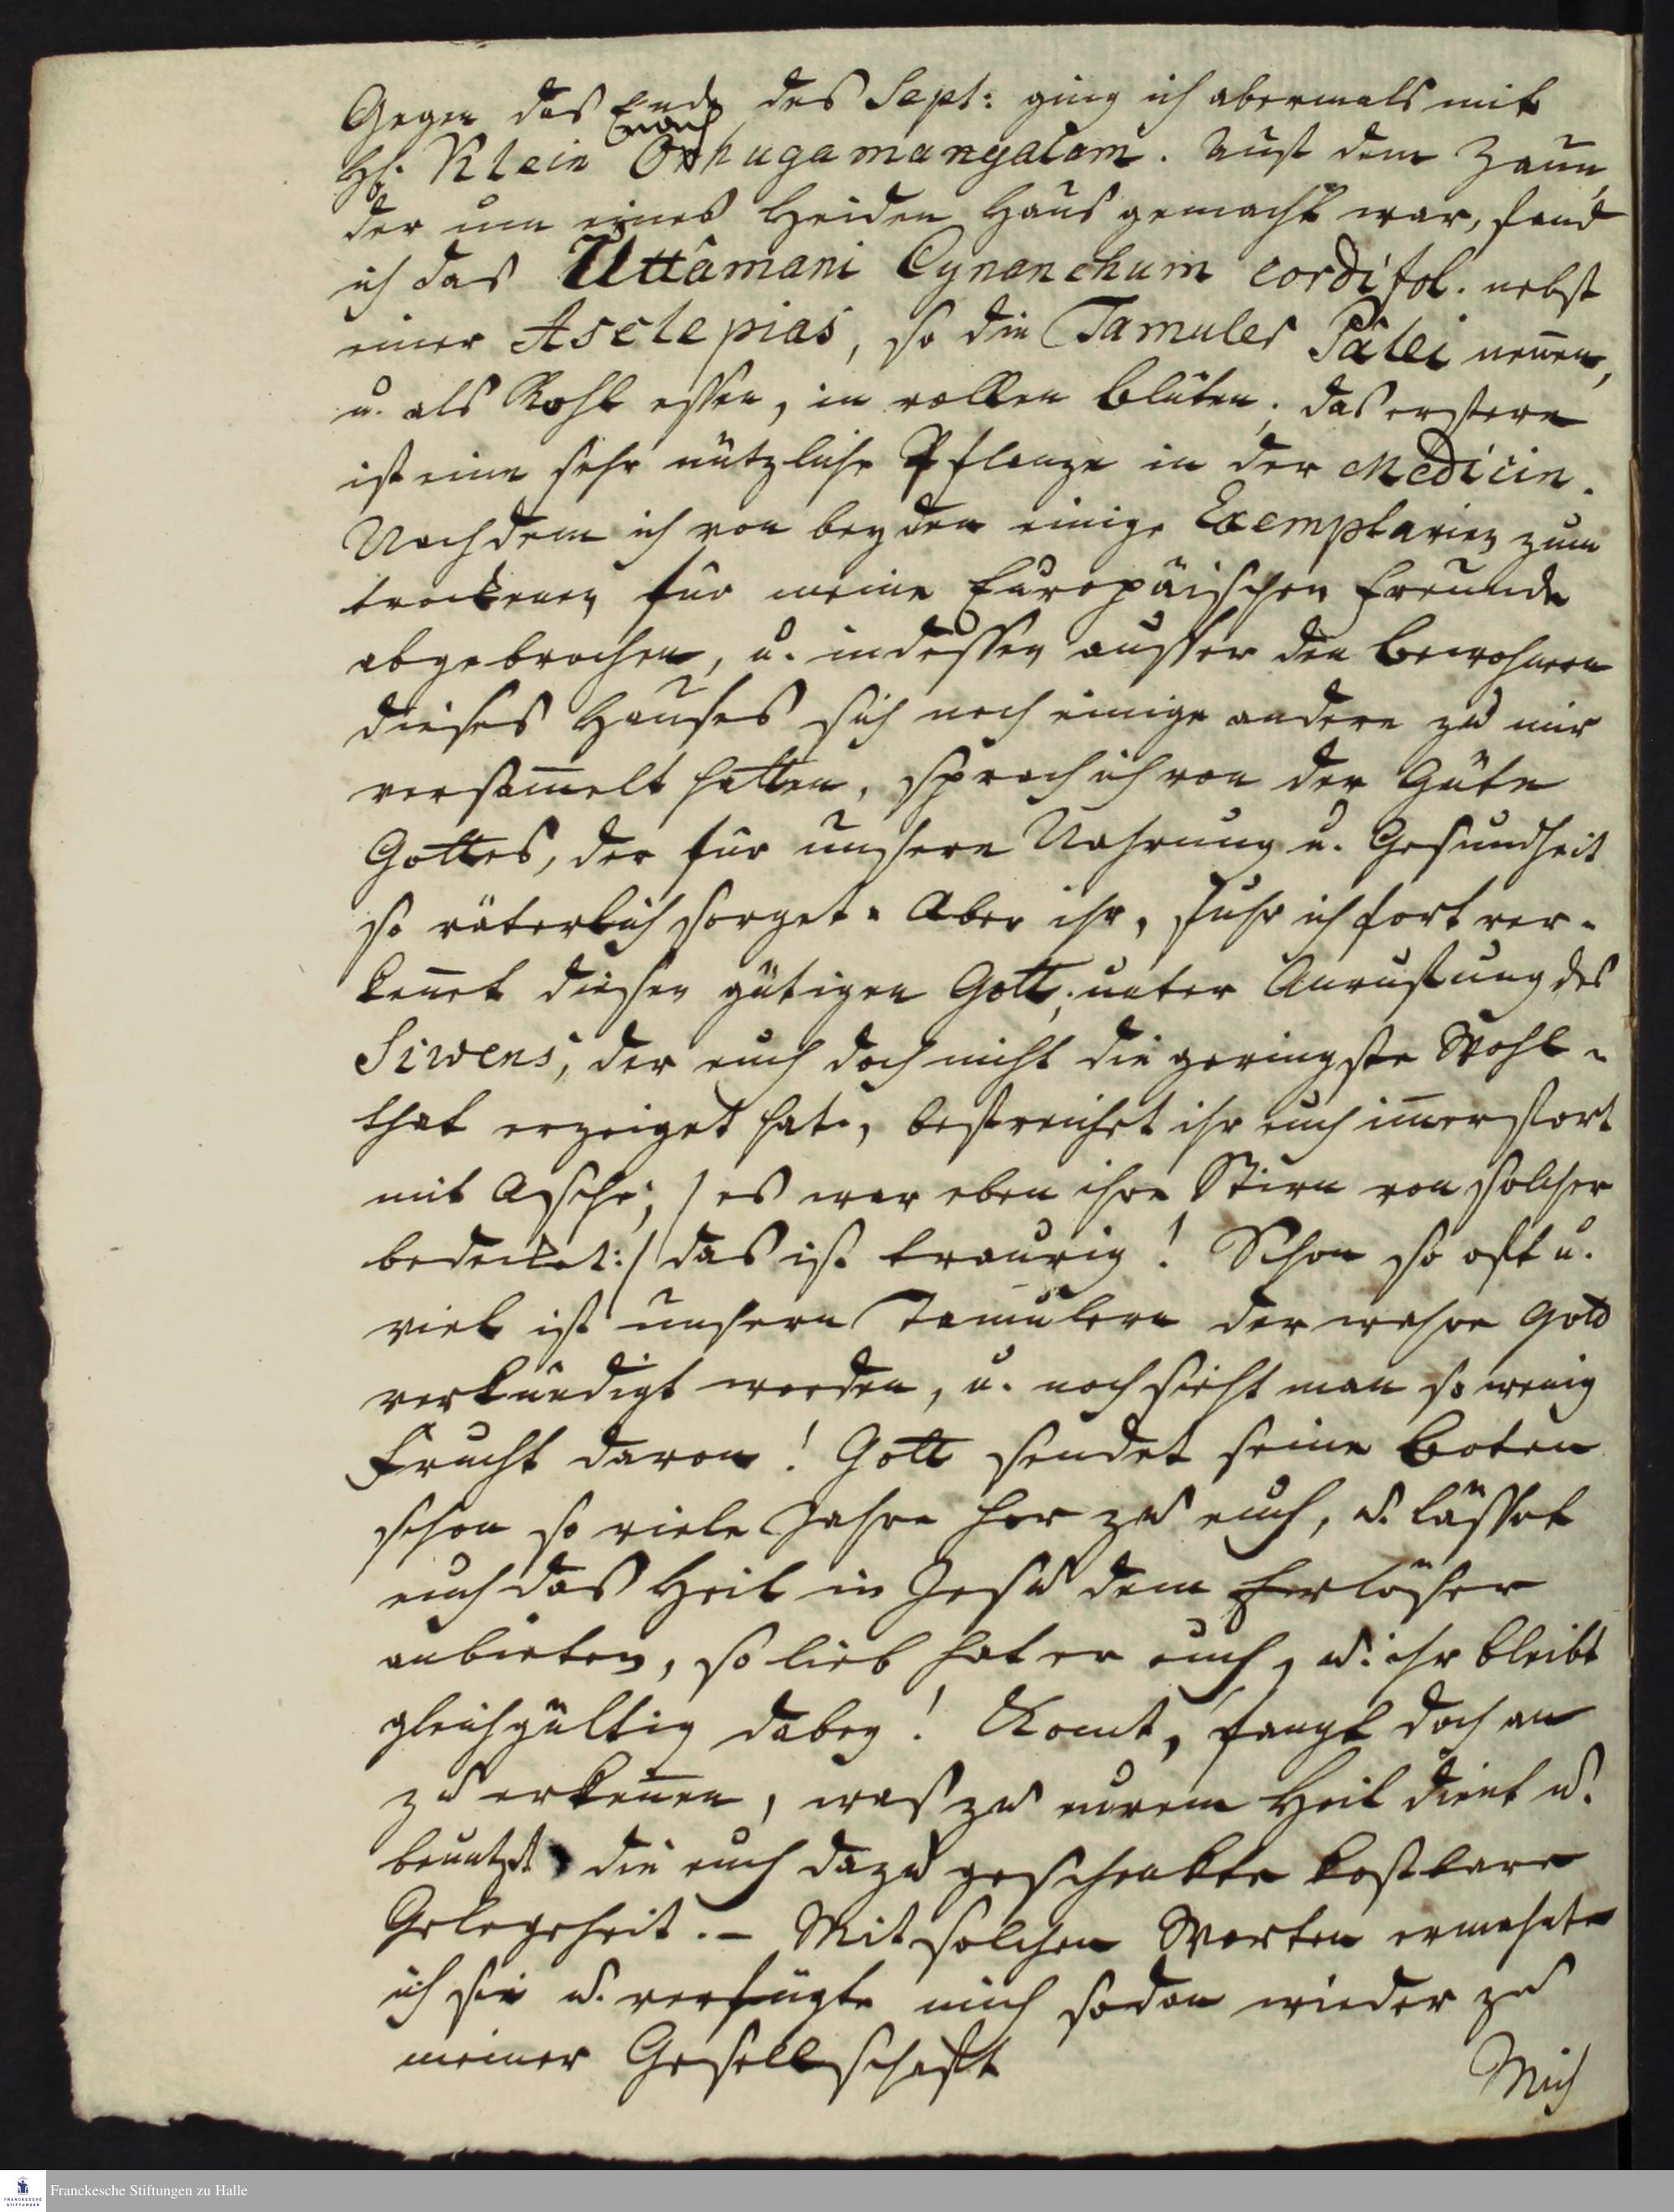 Gegen das Ende des Sept: ging ich abermals mit
H. Klein nach Orhugamangalam. Auf dem Zaun,
der um eines Heiden Haus gemacht war, fand
ich das Uttâmani Cynanchum cordifol. nebst
einer Asclepias, so die Tamuler Pâlei nen̄en,
u. als Kohl essen, in vollen Blüten; das erstere
ist eine sehr nützliche Pflanze in der Medicin.
Nachdem ich von beyden einige Exemplarien zum
trockenen für meine Europäischen Freunde
abgebrochen, u. indessen ausser den Bewohnern
dieses Hauses sich noch einige andere zu mir
versam̄elt hatten, sprach ich von der Güte
Gottes, der für unsere Nahrung u. Gesundheit
so väterlich sorget. Aber ihr, fuhr ich fort ver-
ken̄et diesen gütigen Gott; unter Anrufung des
Siwens, der euch doch nicht die geringste Wohl-
that erzeiget hat, bestreichet ihr euch im̄erfort
mit Asche; /es war eben ihre Stirn von solcher
bedecket:/ das ist traurig! Schon so oft u.
viel ist unsern Tamulern der wahre Gott
verkündigt worden, u. noch sieht man so wenig
Frucht davon! Gott sendet seine Boten
schon so viele Jahre her zu euch, u. lässet
euch das Heil in Jesu dem Erlöser
anbieten, so lieb hat er euch, u. ihr bleibt
gleichgültig dabey! Komt, fangt doch an
zu erken̄en, was zu eurem Heil dient u.
benutzt die euch dazu geschenkte kostbare
Gelegeheit. – Mit solchen Worten ermahnte
ich sie u. verfügte mich sodan wieder zu
meiner Gesellschaft
Mich
Franckesche Stiftungen zu Halle
FRANCKESCHE STIFTUNGEN